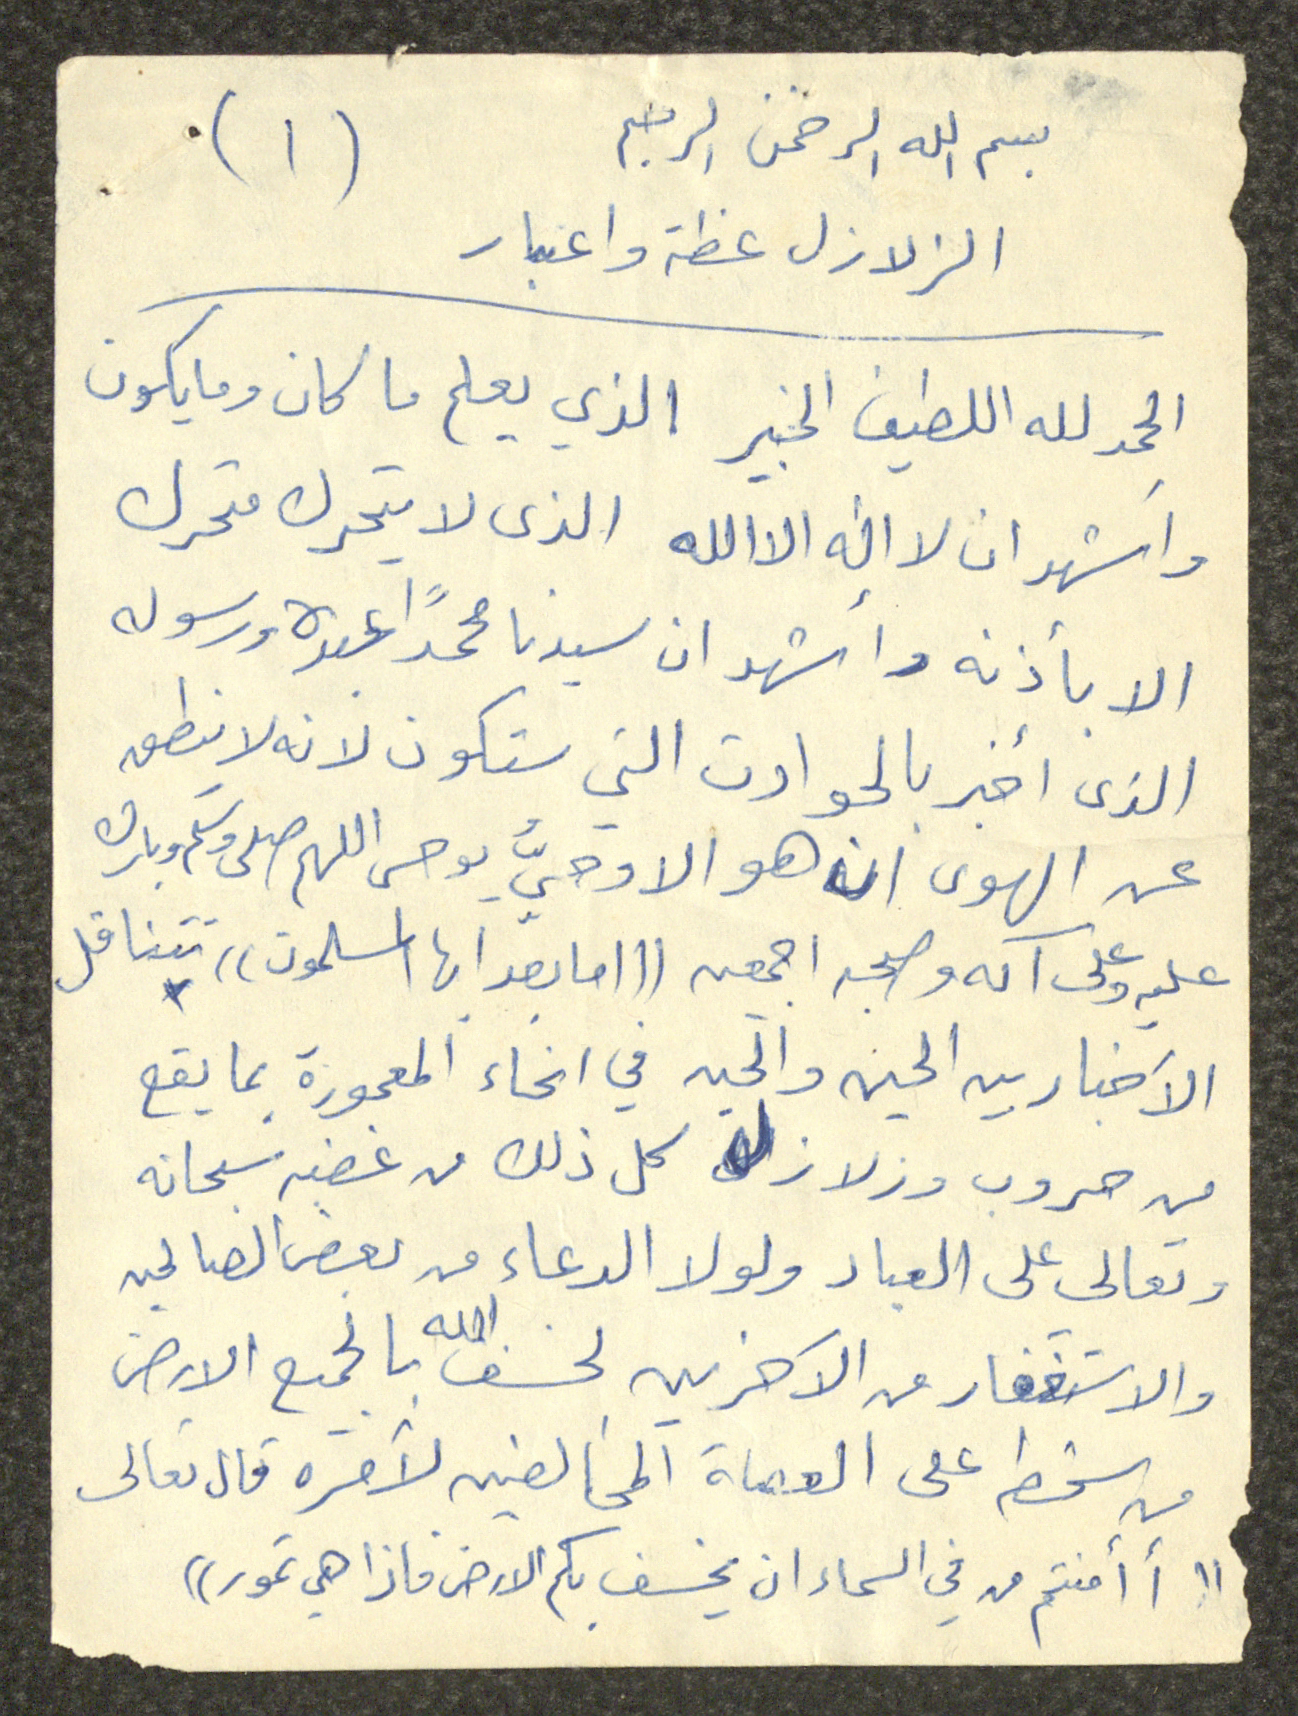 بسم الله الرحمن الرحيم (١)
الزلازل عظة واعتبار
الحمد لله اللطيف الخبير الذي يعلم ما كان وما يكون
وأشهد ان لا اله الا الله الذى لا يتحرك متحرك
الا بأذنه وأشهد ان سيدنا محمداً عبده ورسوله
الذى أخبر بالحوادث التي ستكون لانه لا ينطق
عن الهوى ان هو الا وحيٌ يوحى اللهم صلى وسلم وبارك
عليه وعلى آله وصحبه اجمعين ((اما بعد ايها المسلمون)) تتناقل
الأخبار بين الحين والحين في انحاء المعمورة بما يقع
من حروب وزلازل كل ذلك من غضبه سبحانه
وتعالى على العباد ولولا الدعاء من بعض الصالحين
والاستغفار من الآخرين لخسف الله بالجميع الارض
من سخط على العصاة المخالفين لأمره قال تعالى
(( أأمنتم من في السماء ان يخسف بكم الارض فاذا هي تمور))